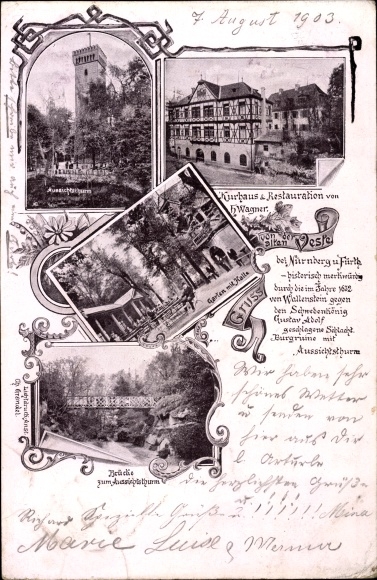 7. August 1903.
Aussichtsthurm
Kurhaus & Restauration von
H. Wagner.
Garten mit Halle
Gruss
von der
alten Veste
bei Nürnberg u. Fürth
- historisch merkwürdig
durch die im Jahre 1632
von Wallenstein gegen
den Schwedenkönig
Gustav Adolf
geschlagene Schlacht.
Burgruine mit
Aussichtsthurm
Brücke
zum Aussichtsthurm
Wir haben sehr
schönes Wetter
u. senden von
hier aus Dir
l.
die herzlichsten Grüße
Richard Spezielle Grüße u. !!!!!! Mina
Marie Luise & Werner